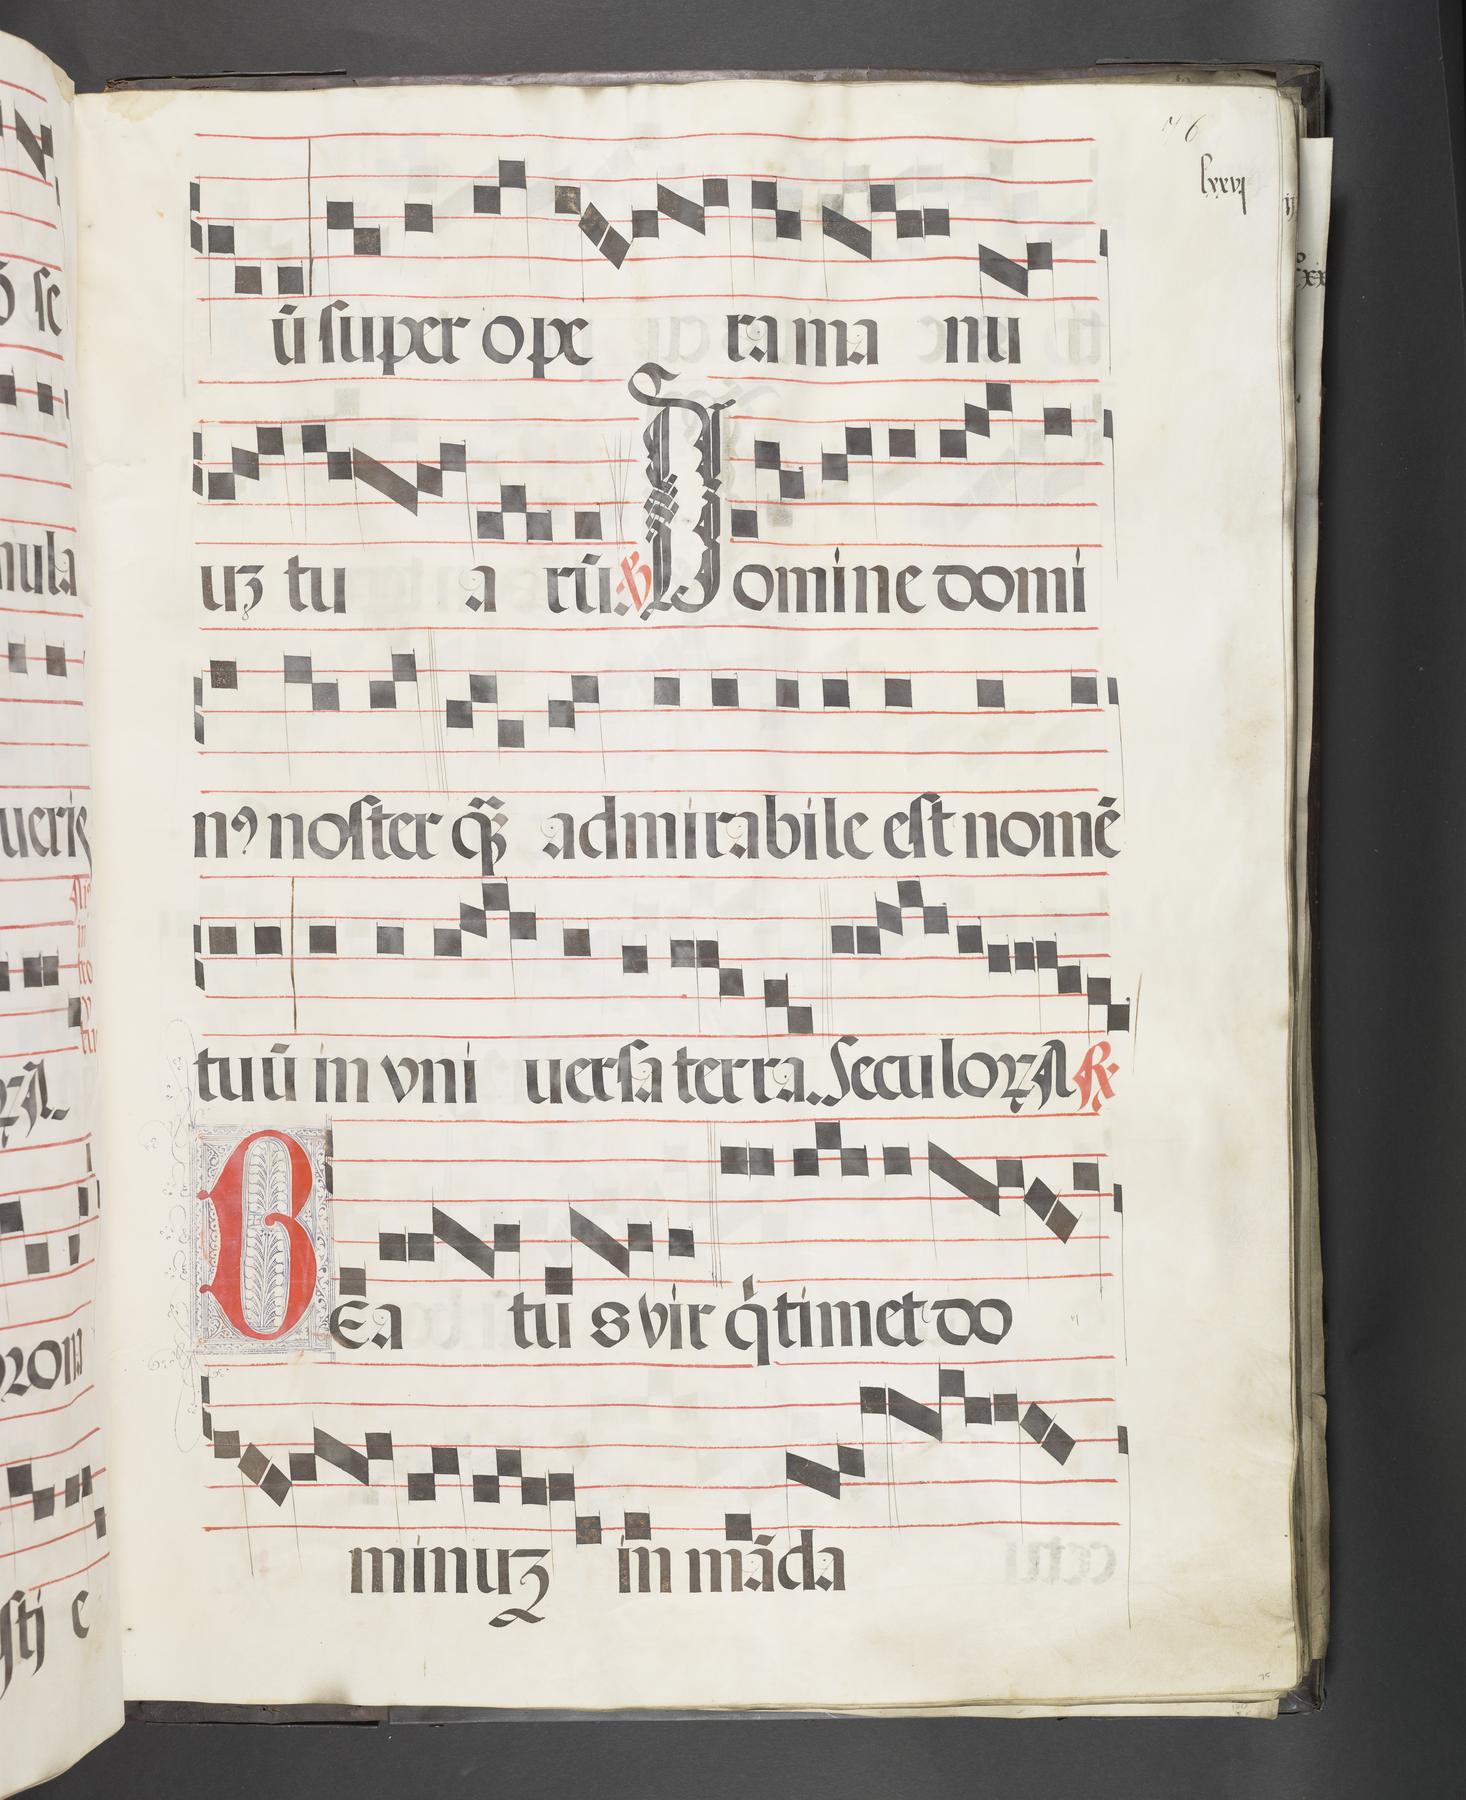 76
lxxvj
ū super ope ra ma nu
uʒ tu a rū. ℣ Domine domi
nꝯ noster q̃ʒ admirabile est nomē
tuū in vni uersa terra. SeculoꝝA ℟
BEa tu s vir q̇ timet do
minuʒ in mãda